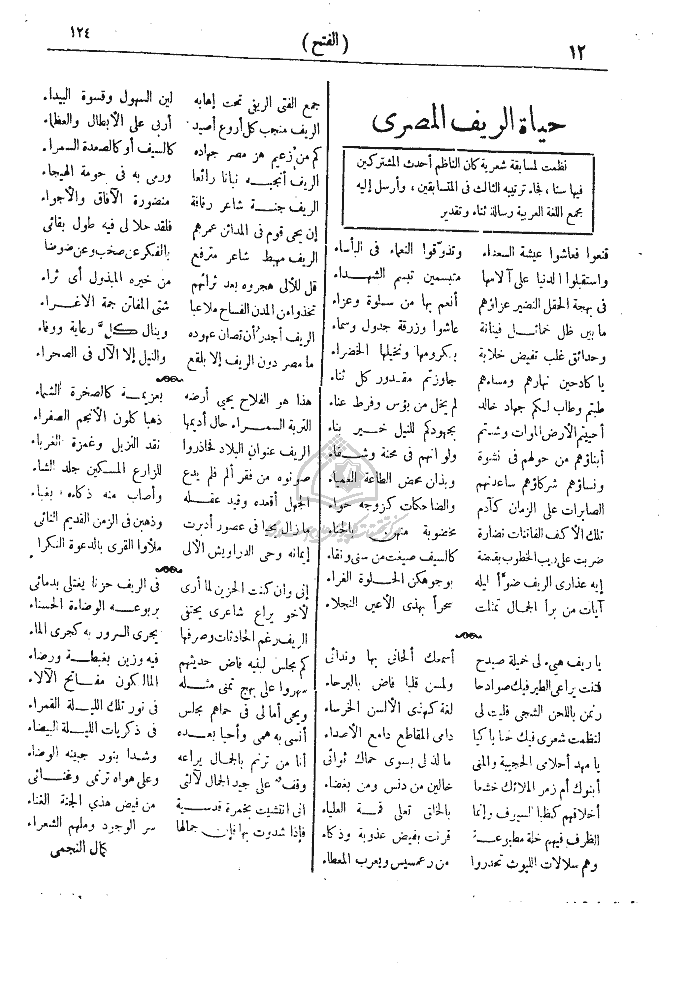 ١٢
(الفتح)
١٢٤
حياة الريف المصرى
نظمت لمسابقة شعرية كان الناظم أحدث المشتركين
فيها سنا، فجاء ترتيبه الثالث فى المتسابقين، وأرسل إليه
مجمع اللغة العربية رسالة ثناء وتقدير
قنعوا فعاشوا عيشة السعداء وتذوقوا النعماء فى البأساء
واستقبلوا الدنيا على آلامها متبسمين تبسم الشهداء
فى بهجة الحقل النضير عزاؤهم أنعم بها من سلوة وعزاء
ما بين ظل خمائل فينانة عاشوا وزرقة جدول وسماء
وحدائق غلب تفيض خلابة بكرومها ونخيلها الخضراء
يا كادحين نهارهم ومساءهم جاوزتم مقدور كل ثناء
طبتم وطاب لكم جهاد خالد لم يخل من بؤس وفرط عناء
أحييتم الأرض الموات وشدتم بجهودكم للنيل خير بناء
أبناؤهم من حولهم فى نشوة ولو انهم فى محنة وشقاء
ونساؤهم شركاؤهم ساعدنهم وبذان محض الطاعة العمياء
الصابرات على الزمان كآدم والضاحكات كزوجه حواء
تلك الأكف الفاتنات نضارة مخضوبة منهن بالحناء
ضربت على ريب الخطوب بقبضة كالسيف صيغت من سنى ونقاء
إيه عذارى الريف ضوّأ ليله بوجوهكن الحلوة الغراء
آيات من برأ الجمال تمثلت سحراً بهذى الأعين النجلاء
يا ريف هيء لى خميلة صيدح أسمعك ألحانى بها وندائى
فتنت يراعى الطير فيك صوادحا ولمسن قلبا فاض بالبرحاء
رتمن باللحن الشجى فليت لى لغة كهذى الألسن الخرساء
لنظمت شعرى فيك لحنا باكيا دامى المقاطع دامع الأصداء
يا مهد أحلامى الحبيبة والمنى ما لذ لى بسوى حماك ثوائى
أبنوك أم زمر الملائك خشعا خالين من دنس ومن بغضاء
أخلاقهم كظبا السيوف وإنما بالخلق تعلى قمة العلياء
الظرف فيهم خلة مطبوعة قرنت بفيض عذوبة وذكاء
وهم سلالات الليوث تحدروا من رعمسيس ويعرب المعطاء
جمع الفتى الريفى تحت إهابه لين السهول وقسوة البيداء
الريف منجب كل أروع أصيد أربى على الأبطال والعظماء
كم من زعيم هز مصر جهاده كالسيف أو كالصعدة السمراء
الريف أنجبه نباتا رائعا ورمى به فى حومة الهيجاء
الريف جنة شاعر رفافة منضورة الآفاق والأجواء
إن يحى قوم فى المدائن عمرهم فلقد حلا لى فيه طول بقائى
الريف مهبط شاعر مترفع بالفكر عن صخب وعن ضوضا
قل للألى هجروه بعد ثرائهم من خيره المبذول أى ثراء
تخذوا من المدن الفساح ملاعبا شتى المفاتن جمة الاغراء
الريف أجدر أن تصان عهوده وينال كل رعاية ووفاء
ما مصر دون الريف إلا بلقع والنيل إلا الآل فى الصحراء
هذا هو الفلاح يحيي أرضه بعزيمة كالصخرة الشماء
التربة السمراء حال أديمها ذهبا كلون الأنجم الصفراء
الريف عنوان البلاد فحاذروا نقد النزيل وغمزة الغرباء
صونوه من فقر ألم فلم يدع للزارع المسكين جلد الشاء
الجهل أقعده وقيد عقله وأصاب منه ذكاءه بغباء
ما زال يحيا فى عصور أدبرت وذهبن فى الزمن القديم النائى
إيمانه وحى الدراويش الألى ملأوا القرى بالدعوة النكراء
إنى وان كنت الحزين لما أرى فى الريف حزنا يغتلى بدمائى
لأخو يراع شاعرى يحتفى بربوعه الوضاءة الحسناء
الريف رغم الحادثات وصرفها يجرى السرور به كمجرى الماء
كم مجلس لبنيه فاض حديثهم فيه وزين بغبطة ورضاء
سهروا على بهج تمنى مثله الملكون مفاتح الآلاء
ويحى أما لى فى حماهم مجلس فى نور تلك الليلة القمراء
أنسى به همى وأحيا بعده فى ذكريات الليلة البيضاء
أنا من ترنم بالجمال يراعه وشدا بنور جبينه الوضاء
وقف على جيد الجمال لآلئى وعلى هواه ترنمى وغنائى
انى انتشيت بخمرة قدسية من فيض هذى الجنة الغناء
فإذا شدوت بها فإن جمالها سر الوجود وملهم الشعراء
كمال النجمى